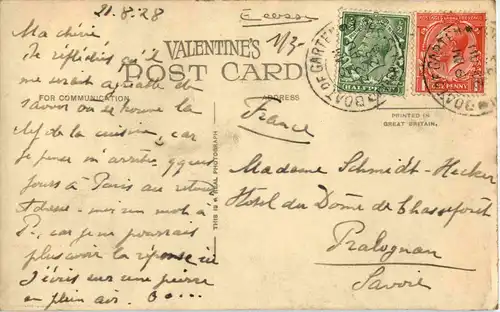 21.8.28
Ecosse
1/3-
VALENTINE'S
POST CARD
FOR COMMUNICATION
ADDRESS
PRINTED IN
GREAT BRITAIN.
THIS IS A REAL PHOTOGRAPH
BOAT OF GARTEN
HALFPENNY
ONE PENNY
BOAT OF GARTEN
Ma chérie
J'ai réfléchi qu'il
me serait agréable de
savoir où se trouve la
clef de la cuisine, car
je pense m'arrêter qques
jours à Paris au retour
Adresse-moi un mot à
P., car je ne pourrais
plus avoir la réponse ici
J'écris sur une pierre
en plein air.
France
Madame Schmidt-Hecker
Hotel du Dôme de Chasseforêt
Pralognan
Savoie